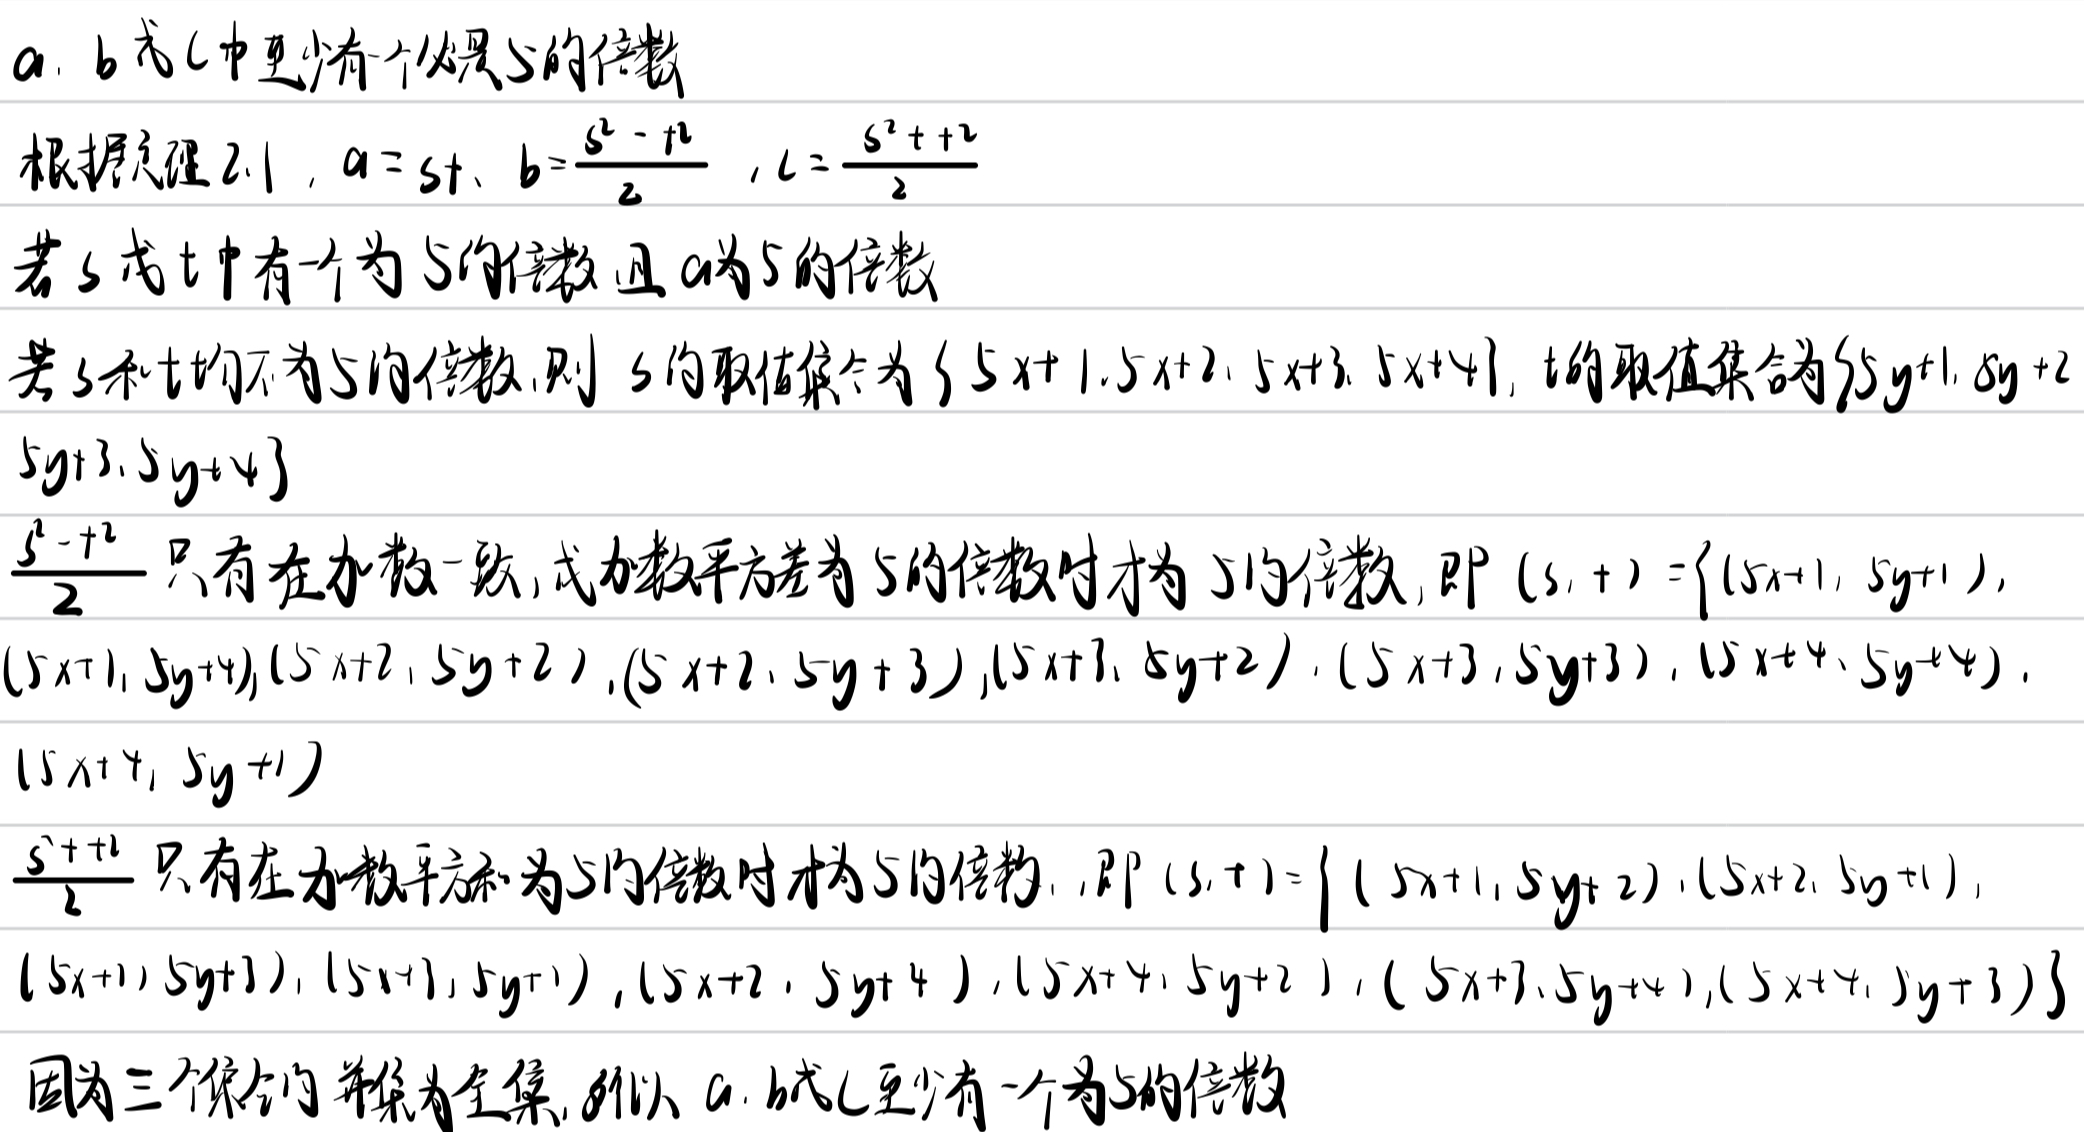 a、b或c中至少有一个必是5的倍数
根据定理2.1，a=st、b=\frac{s²-t²}{2}，c=\frac{s²+t²}{2}
若s或t中有一个为5的倍数且a为5的倍数
若s和t均不为5的倍数,则 s的取值集合为{5x+1、5x+2、5x+3、5x+4}, t的取值集合为{5y+1、5y+2
5y+3、5y+4}
\frac{s²-t²}{2} 只有在加数一致,或加数平方差为5的倍数时才为5的倍数,即 (s,t)={(5x+1, 5y+1),
(5x+1, 5y+4),(5x+2, 5y+2),(5x+2、5y+3),(5x+3、5y+2),(5x+3,5y+3),(5x+4、5y+4),
(5x+4, 5y+1)
\frac{s²+t²}{2} 只有在加数平方和为5的倍数时才为5的倍数,即(s,t)={(5x+1,5y+2),(5x+2、5y+1),
(5x+1,5y+3),(5x+3,5y+1),(5x+2,5y+4),(5x+4,5y+2),(5x+3、5y+4),(5x+4,5y+3)}
因为三个集合的并集为全集,所以a、b或c至少有一个为5的倍数